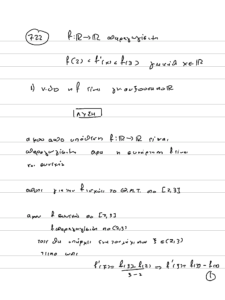 7.22 f: ℝ → ℝ παραγωγίσιμη
f(2) < f'(x) < f(3) για κάθε x ∈ ℝ
1) ν.δ.ο η f είναι γν. αύξουσα στο ℝ
ΛΥΣΗ
από υπόθεση f: ℝ → ℝ είναι
παραγωγίσιμη άρα η συνάρτηση f είναι
και συνεχής
για την f ισχύει το Θ.Μ.Τ. στο [2,3]
αφού f συνεχής στο [2,3]
f παραγωγίσιμη στο (2,3)
τότε θα υπάρχει ένα τουλάχιστον ξ ∈ (2,3)
τέτοιο ώστε
f'(ξ) = f(3) - f(2) / 3 - 2 ⇒ f'(ξ) = f(3) - f(2)
1